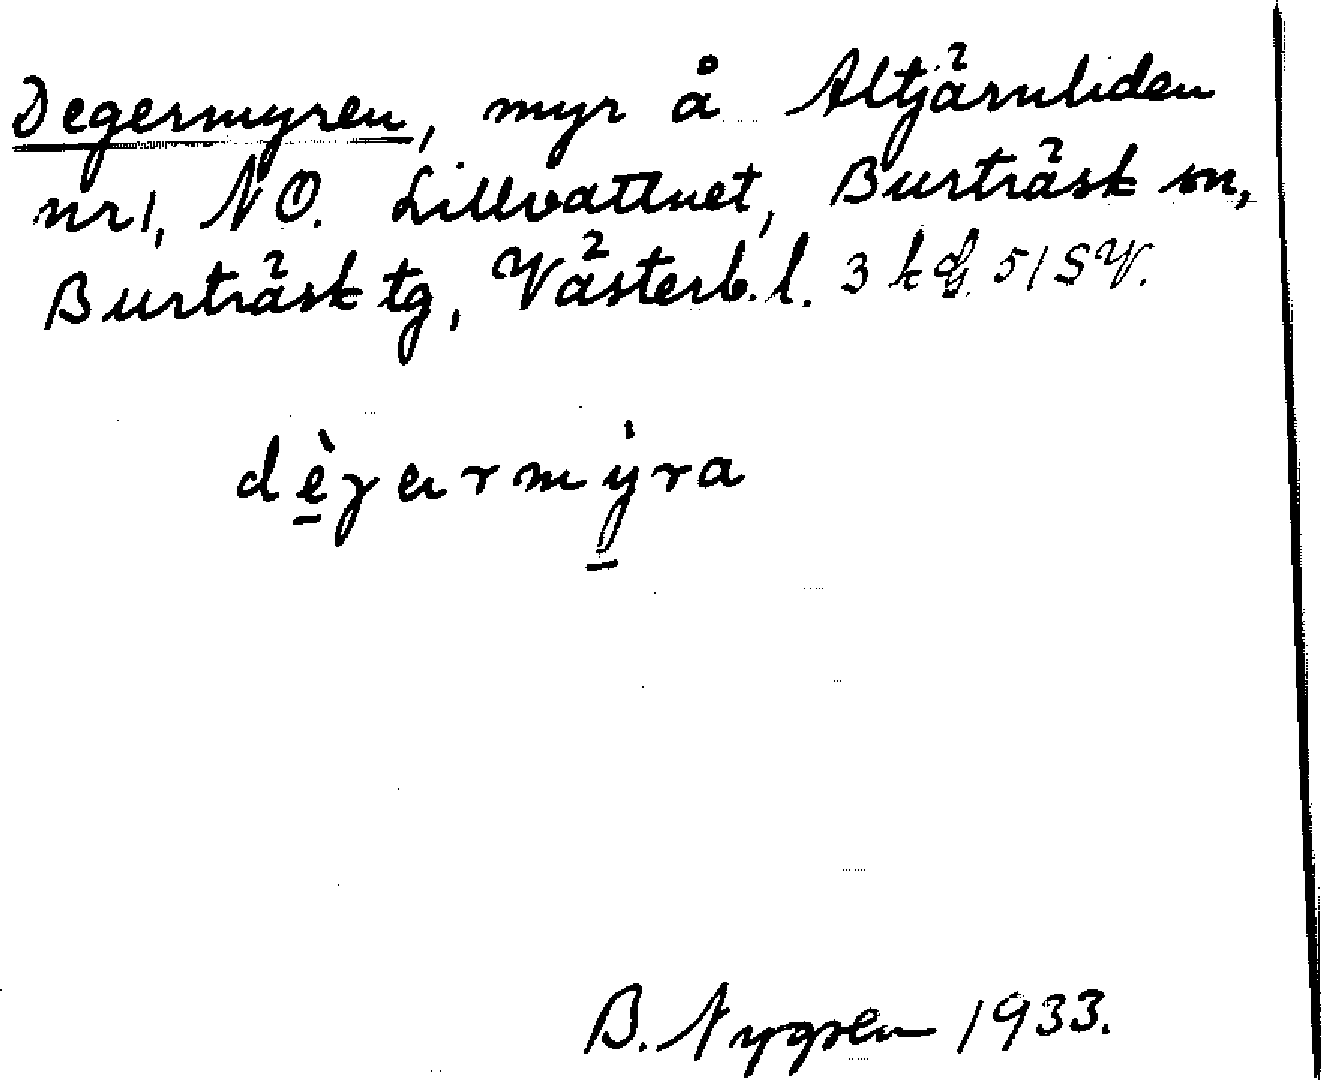 Degermyren, myr å Altjärnliden
nr 1, NO. Lillvattnet, Burträsk sn,
Burträsk tg, Västerb. l. 3 k 51 SV.
dègermýra
B. Nygren 1933.